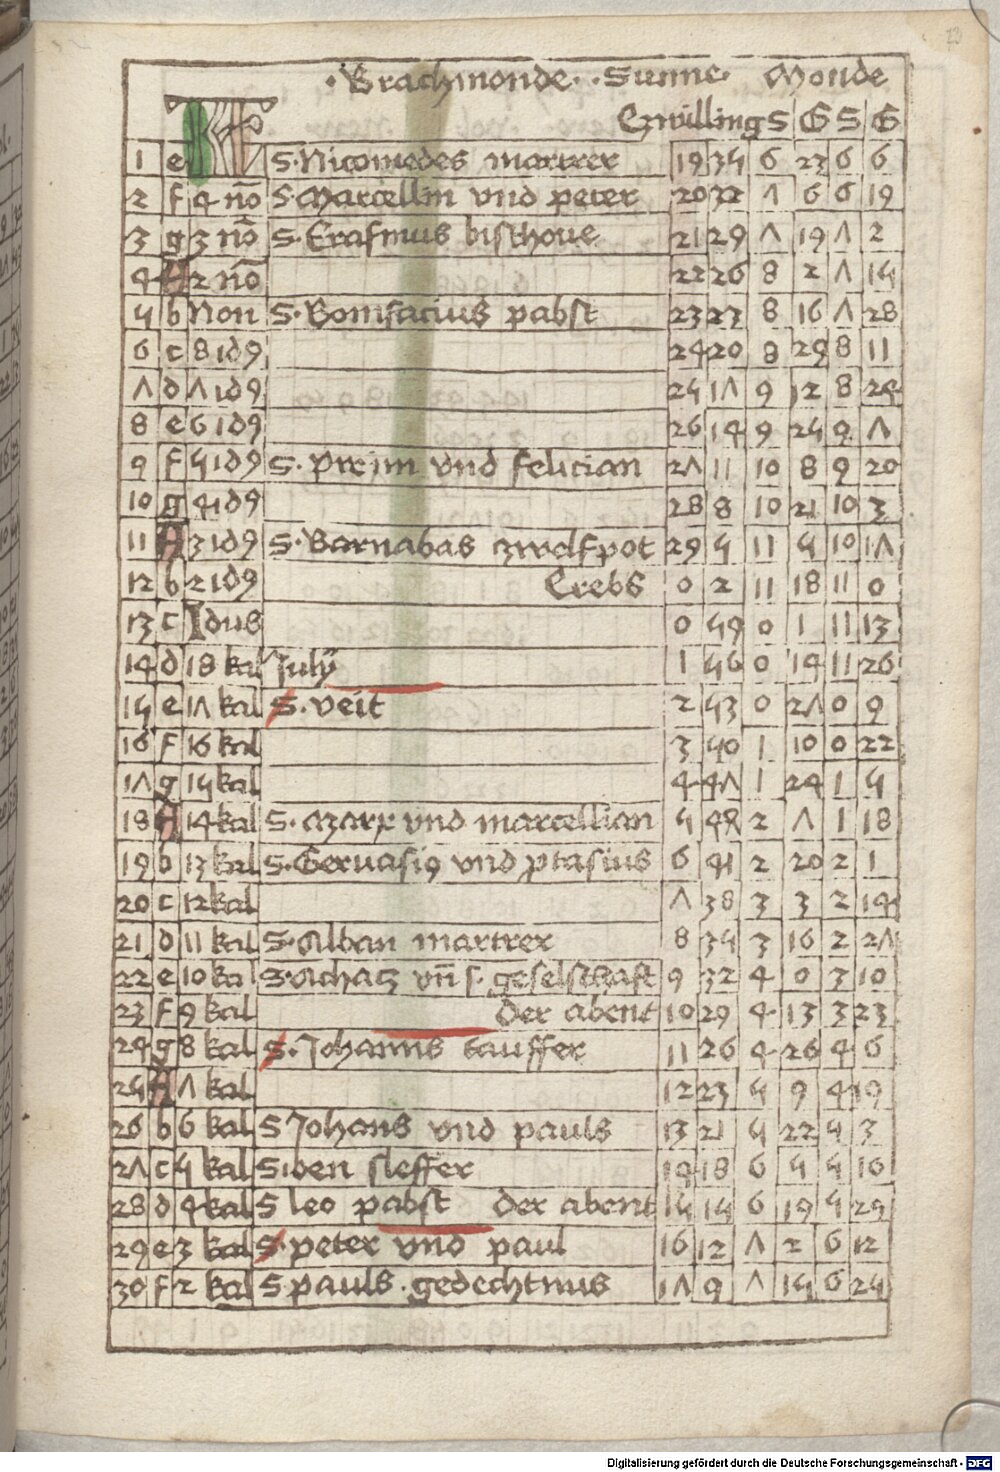 ·Brachmonde· ·Sunne· Monde
KL Czwilling S G S G
1 e S·Nicomedes martrer 19 34 6 23 6 6
2 f 4 no S·Marcellin vnd peter 20 32 7 6 6 19
3 g 3 no S·Erasmus bischoue 21 29 7 19 7 2
4 A 2 no 22 26 8 2 7 15
5 b Non S·Bonifacius pabst 23 23 8 16 7 28
6 c 8 id9 24 20 8 29 8 11
7 d 7 id9 25 17 9 12 8 24
8 e 6 id9 26 14 9 25 9 7
9 f 5 id9 S·Prim vnd felician 27 11 10 8 9 20
10 g 4 id9 28 8 10 21 10 3
11 A 3 id9 S·Barnabas zwelfpot 29 5 11 5 10 17
12 b 2 id9 Crebs 0 2 11 18 11 0
13 c Idus 0 59 0 1 11 13
14 d 18 kal July 1 56 0 14 11 26
15 e 17 kal S·veit 2 53 0 27 0 9
16 f 16 kal 3 50 1 10 0 22
17 g 15 kal 4 47 1 24 1 5
18 A 14 kal S·Marx vnd marcellian 5 44 2 7 1 18
19 b 13 kal S·Gervasi9 vnd ptasius 6 41 2 20 2 1
20 c 12 kal 7 38 3 3 2 14
21 d 11 kal S·Alban martrer 8 35 3 16 2 27
22 e 10 kal S·Achacz vn̄ s. geselschaft 9 32 4 0 3 10
23 f 9 kal der abent 10 29 4 13 3 23
24 g 8 kal S·Johanns tauffer 11 26 4 26 4 6
25 A 7 kal 12 23 5 9 4 19
26 b 6 kal S Johans vnd pauls 13 21 5 22 5 3
27 c 5 kal Siben sleffer 14 18 6 5 5 16
28 d 4 kal S leo pabst der abent 15 15 6 19 5 29
29 e 3 kal S·peter vnd paul 16 12 7 2 6 12
30 f 2 kal S pauls·gedechtnus 17 9 7 15 6 25
Digitalisierung gefördert durch die Deutsche Forschungsgemeinschaft - DFG